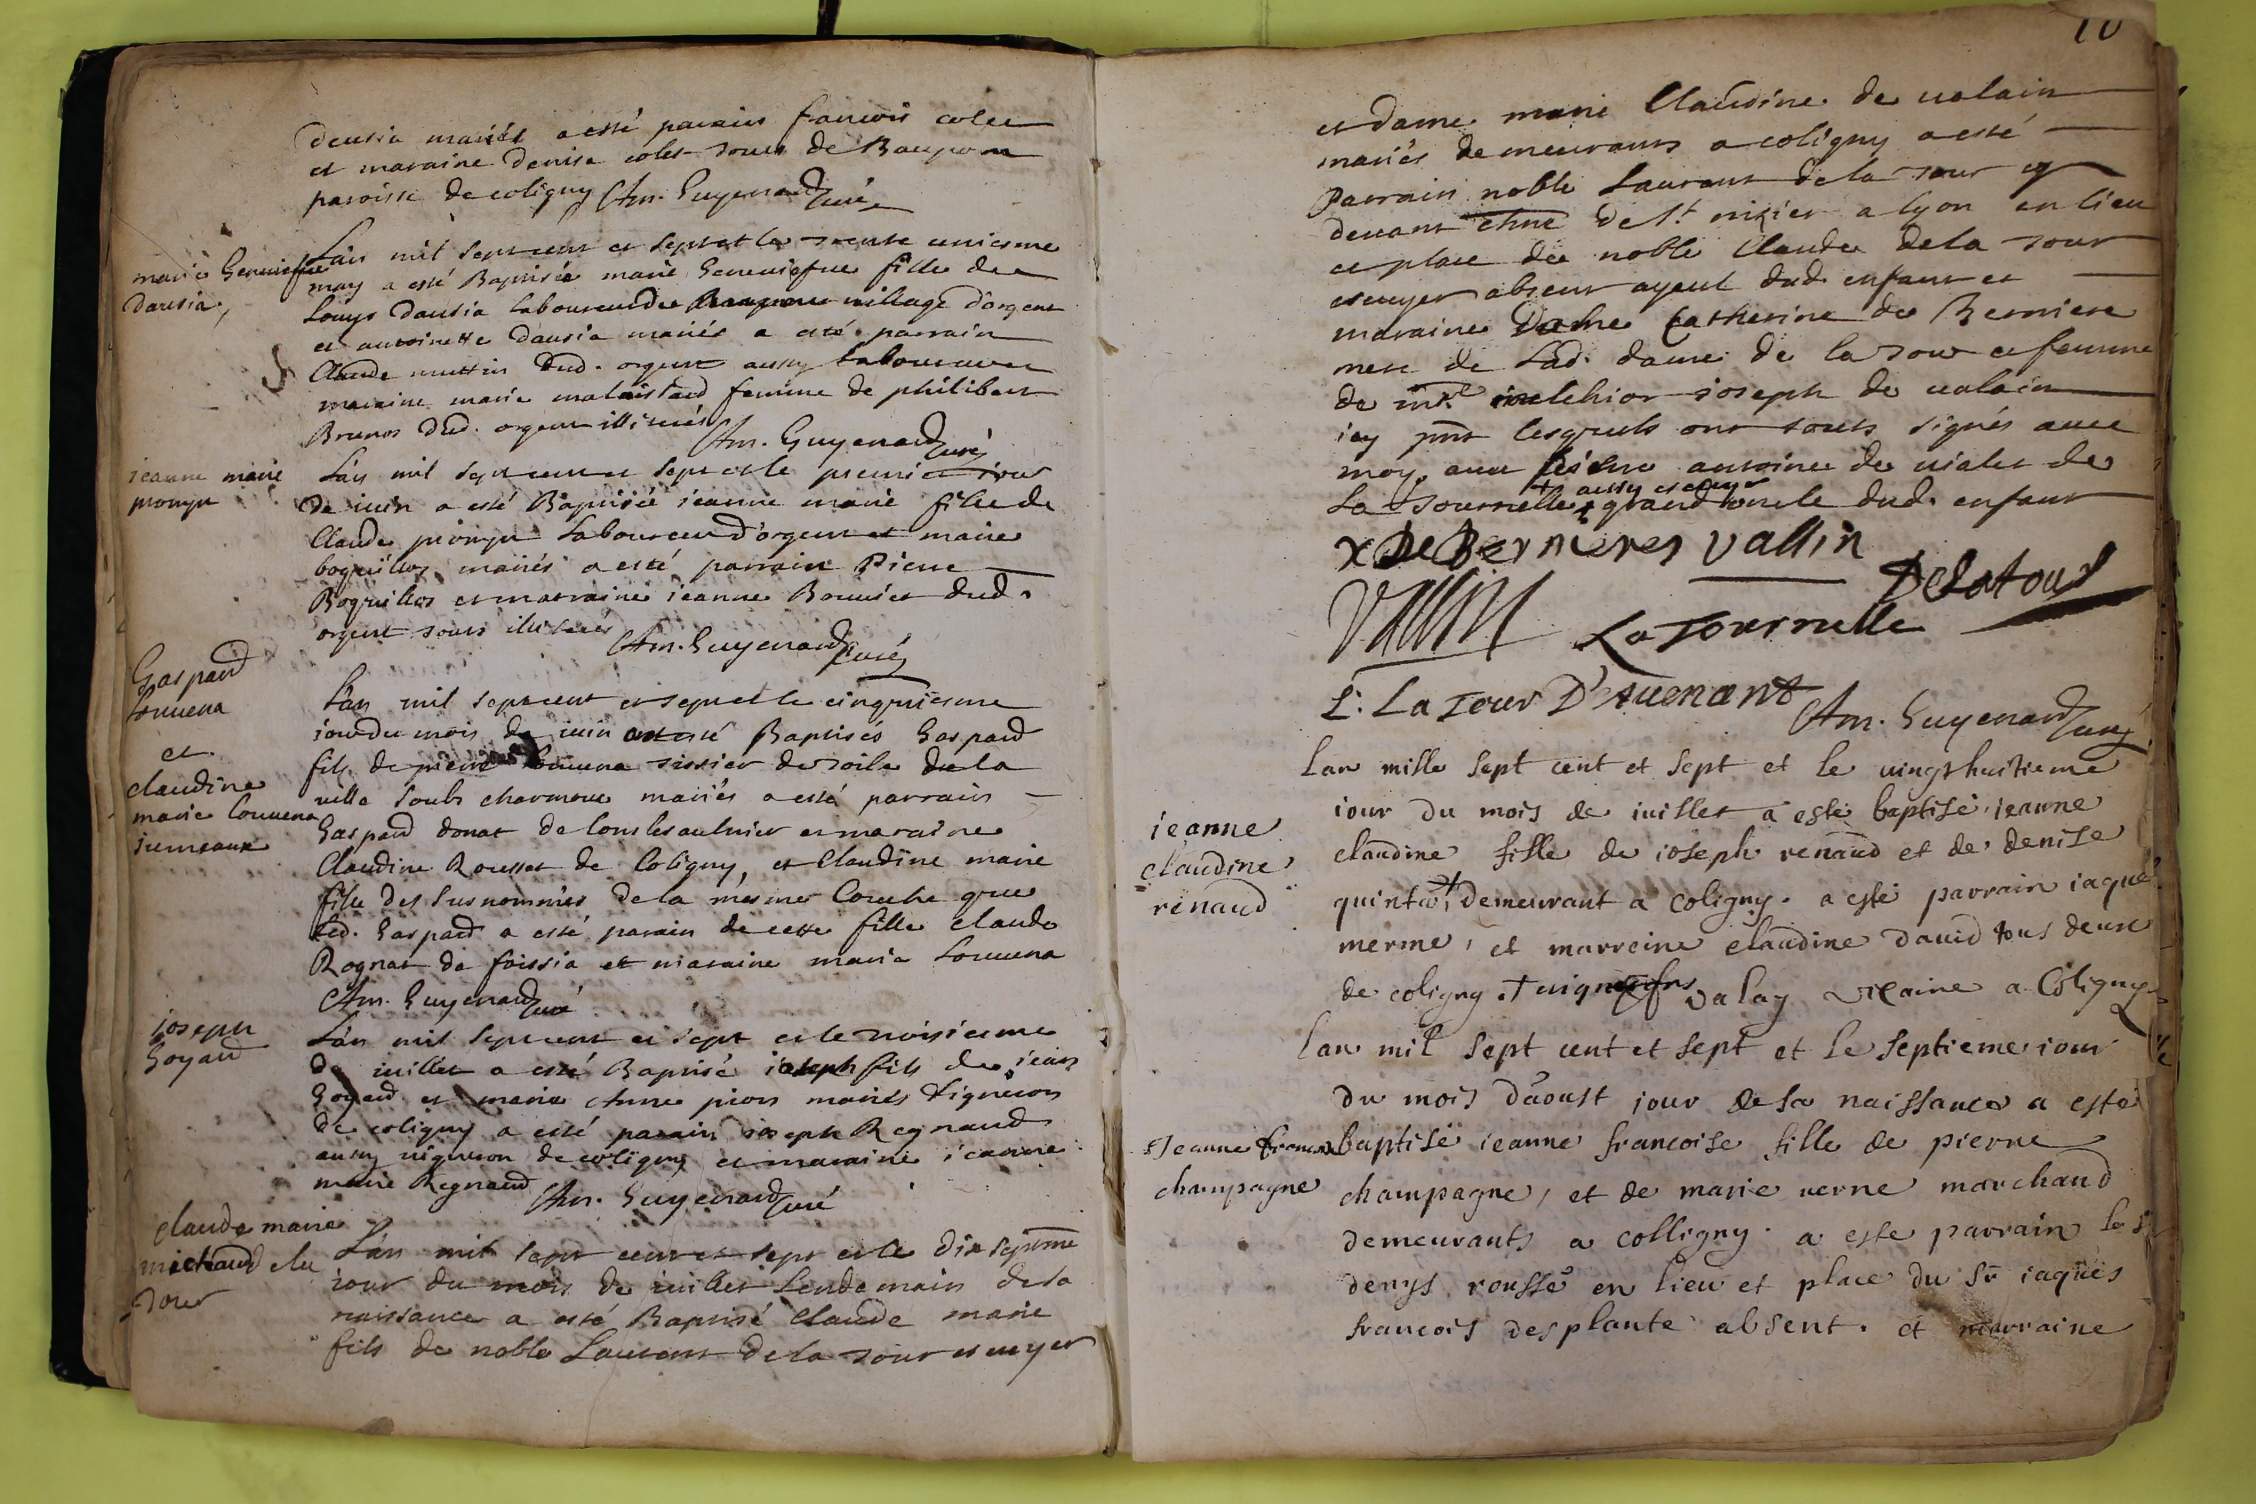 dausia mariés a esté parain francois colet
et maraine denise colet tous de Baupont
paroisse de coligny Am. Guyenard curé
marie Geneviefue
dausia
Lan mil sept cent et sept et le trente uniesme
may a esté Baptisée marie Geneuiefue fille de
Louys dausia laboureur de village d'orgent
et antoinette dausia mariés a esté parrain
Claude mettin dud. orgent aussy laboureur
maraine marie femme de philibert
Brunos dud. orgent illiterés Am. Guyenard curé
ieanne marie
pronpt
Lan mil sept cent et sept et le premier iour
de iuin a esté Baptisée ieanne marie fille de
Claude laboureur d'orgent et marie
boquillos mariés a esté parrain Pierre
Boquillos et marraine ieanne Bouuier dud.
orgent tous illiterés Am. Guyenard curé
Gaspard
Louuena
et
claudine
marie louuena
iumeaux
Lan mil sept cent et sept et le cinquiesme
iour du mois de iuin ont esté Baptisés Gaspard
fils de pierre louuena tissier de toile de la
ville soubs charmoux mariés a esté parrain
Gaspard donat de lonslesaulnier et maraine
Claudine Rousset de Coligny, et Claudine marie
fille des susnommés de la mesme Couche que
led. Gaspard a esté parain de cette fille claude
Rognat de foissia et maraine maria Louuena
Am. Guyenard curé
ioseph
Goyard
Lan mil sept cent et sept et le troisiesme
de iuillet a esté Baptisé ioseph fils de iean
Goyard et marie Anne pion mariés vigneron
de coligny a esté parain ioseph Regnaud
aussy vigneron de coligny et maraine ieanne
marie Regnaud Am. Guyenard curé
claude marie
michaud de la
tour
Lan mil sept cent et sept et le dix septme
iour du mois de iuillet lendemain de sa
naissance a esté Baptisé Claude marie
fils de noble Laurent de la tour escuyer
10
et dame marie Claudine de ualain
mariés demeurants a coligny a esté
Parrain noble Laurant de la tour
deuant chne de St nizier a lyon en lieu
et place de noble Claude de la tour
escuyer absent ayeul dud. enfant et
maraine dame Catherine de Berniere
mere de lad. dame de la tour et femme
de mre melchior ioseph de ualain
icy pnt lesquels ont touts signés auec
moy auec antoine de uialet de
La tournelle + aussy escuyer grand oncle dud. enfant
x De Bernieres Vallin
Delatour
Vallin La Tournelle
L. La Tour D'auenant
Am. Guyenard curé
ieanne
claudine
renaud
Lan mille sept cent et sept et le uingthuitieme
iour du mois de iuillet a esté baptisé ieanne
claudine fille de ioseph renaud et de denise
quinta + demeurant a coligny. a esté parrain iaque
merme, et marreine claudine dauid tous deux
de coligny. + uignerons Dalay vicaire a Coligny
Jeanne francoise
champagne
lan mil sept cent et sept et le septieme iour
du mois d'aoust iour de sa naissance a esté
baptisé ieanne francoise fille de pierre
champagne, et de marie uerne marchand
demeurants a colligny. a esté parrain le sr
denys roussé en lieu et place du sr iaques
francois desplante absent. et marraine